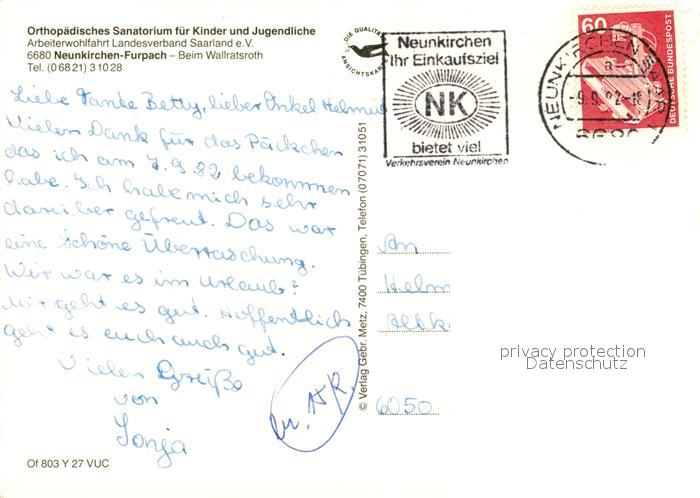 Orthopädisches Sanatorium für Kinder und Jugendliche
Arbeiterwohlfahrt Landesverband Saarland e.V.
6680 Neunkirchen-Furpach – Beim Wallratsroth
Tel. (0 68 21) 3 10 28
DIE QUALITÄTS
ANSICHTSKARTE
Neunkirchen
Ihr Einkaufsziel
NK
bietet viel
Verkehrsverein Neunkirchen
NEUNKIRCHEN SAAR
a
-9.9.82
6680
60
DEUTSCHE BUNDESPOST
Liebe Tante Betty, lieber Onkel Helmut
Vielen Dank für das Päckchen
das ich am 7.9.82 bekommen
habe. Ich habe mich sehr
darüber gefreut. Das war
eine schöne Überraschung.
Wie war es im Urlaub?
Mir geht es gut. Hoffentlich
geht es euch auch gut.
Vielen Grüße
von
Sonja
© Verlag Gebr. Metz, 7400 Tübingen, Telefon (07071) 31051
An
Helm
6050
privacy protection
Datenschutz
Of 803 Y 27 VUC